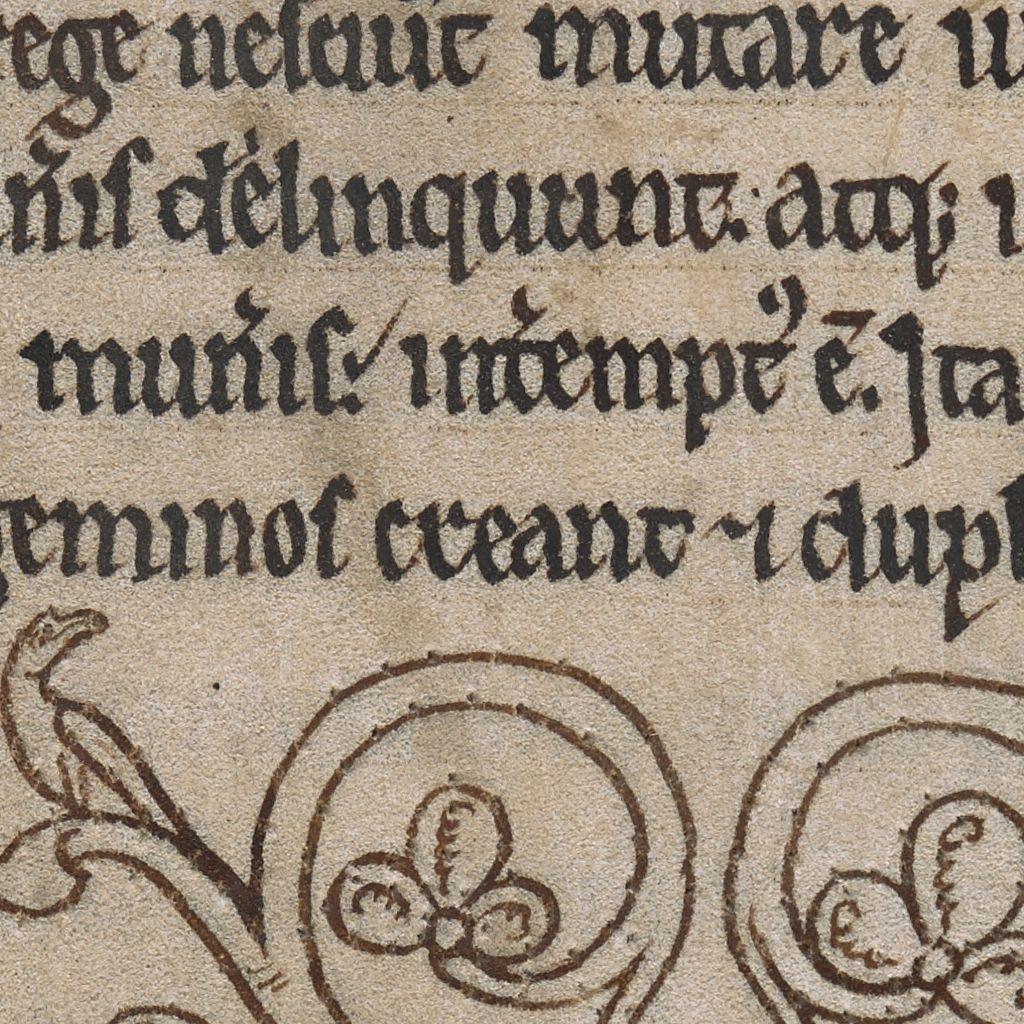 rege nesciuit mutare
n̄is delinquunt. atq;
mun̄is: int̄tempt᾽ ē. Ita
geminos creant ⁊ dupl